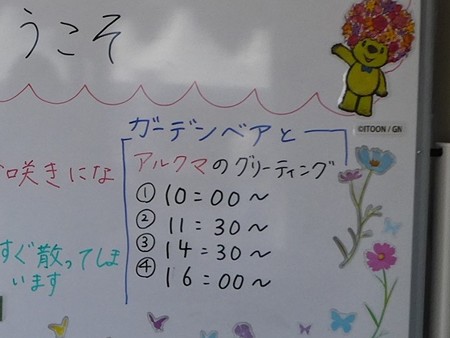 うこそ
©ITOON / GN
ガーデンベアと
アルクマのグリーティング
① 10:00〜
② 11:30〜
③ 14:30〜
④ 16:00〜
咲きにな
すぐ散ってしま
います